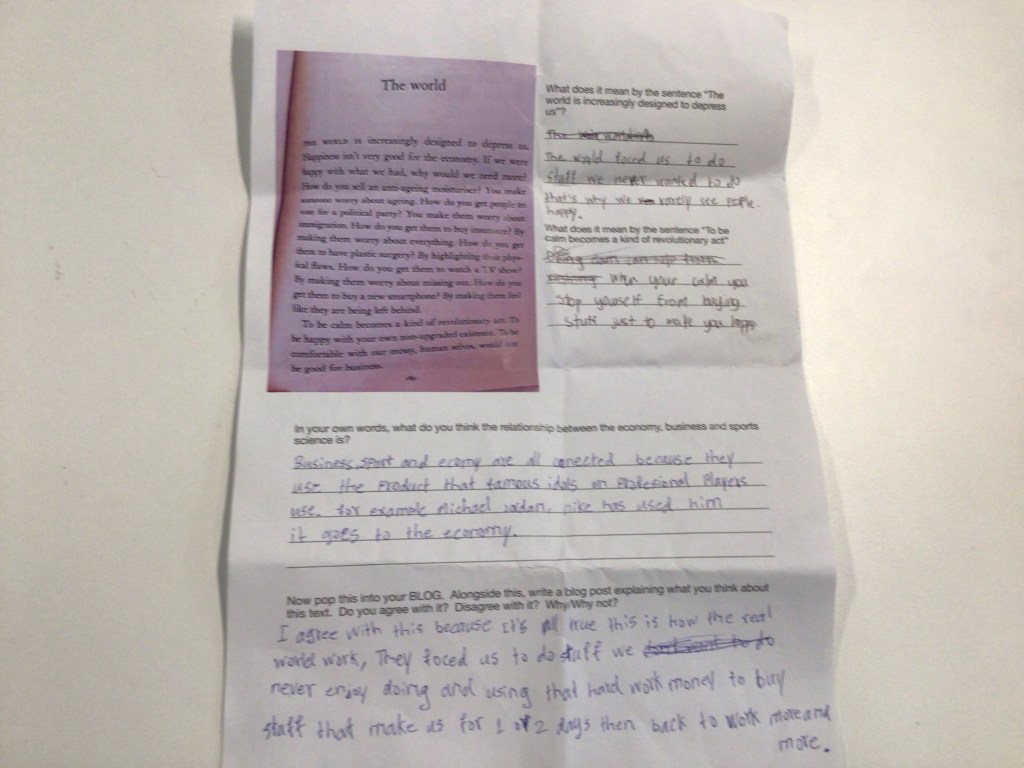 The world
THE WORLD IS increasingly designed to depress us.
Happiness isn't very good for the economy. If we were
happy with what we had, why would we need more?
How do you sell an anti-ageing moisturiser? You make
someone worry about ageing. How do you get people to
vote for a political party? You make them worry about
immigration. How do you get them to buy insurance? By
making them worry about everything. How do you get
them to have plastic surgery? By highlighting their phys-
ical flaws. How do you get them to watch a TV show?
By making them worry about missing out. How do you
get them to buy a new smartphone? By making them feel
like they are being left behind.
To be calm becomes a kind of revolutionary act. To
be happy with your own non-upgraded existence. To be
comfortable with our messy, human selves, would not
be good for business.
What does it mean by the sentence "The
world is increasingly designed to depress
us"?
The
The world foced us to do
stuff we never wanted to do
that's why we rarely see people.
happy.
What does it mean by the sentence "To be
calm becomes a kind of revolutionary act"
when your calm you
stop yourself from buying
stuff just to make you happy
In your own words, what do you think the relationship between the economy, business and sports
science is?
Business, sport and ecomy are all conected because they
use the Product that famous idols on Profesional Players
use, for example Michael Jordan, nike has used him
it goes to the economy.
Now pop this into your BLOG. Alongside this, write a blog post explaining what you think about
this text. Do you agree with it? Disagree with it? Why/Why not?
I agree with this because It's all true this is how the real
world work, They foced us to do stuff we don't want to do
never enjoy doing and using that hard work money to buy
staff that make us for 1 or 2 days then back to work more and
more.